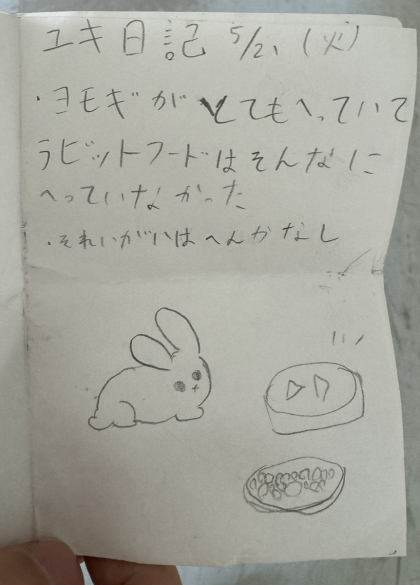 ユキ日記 5/21 (火)
・ヨモギがとてもへっていて
ラビットフードはそんなに
へっていなかった
・それいがいはへんかなし